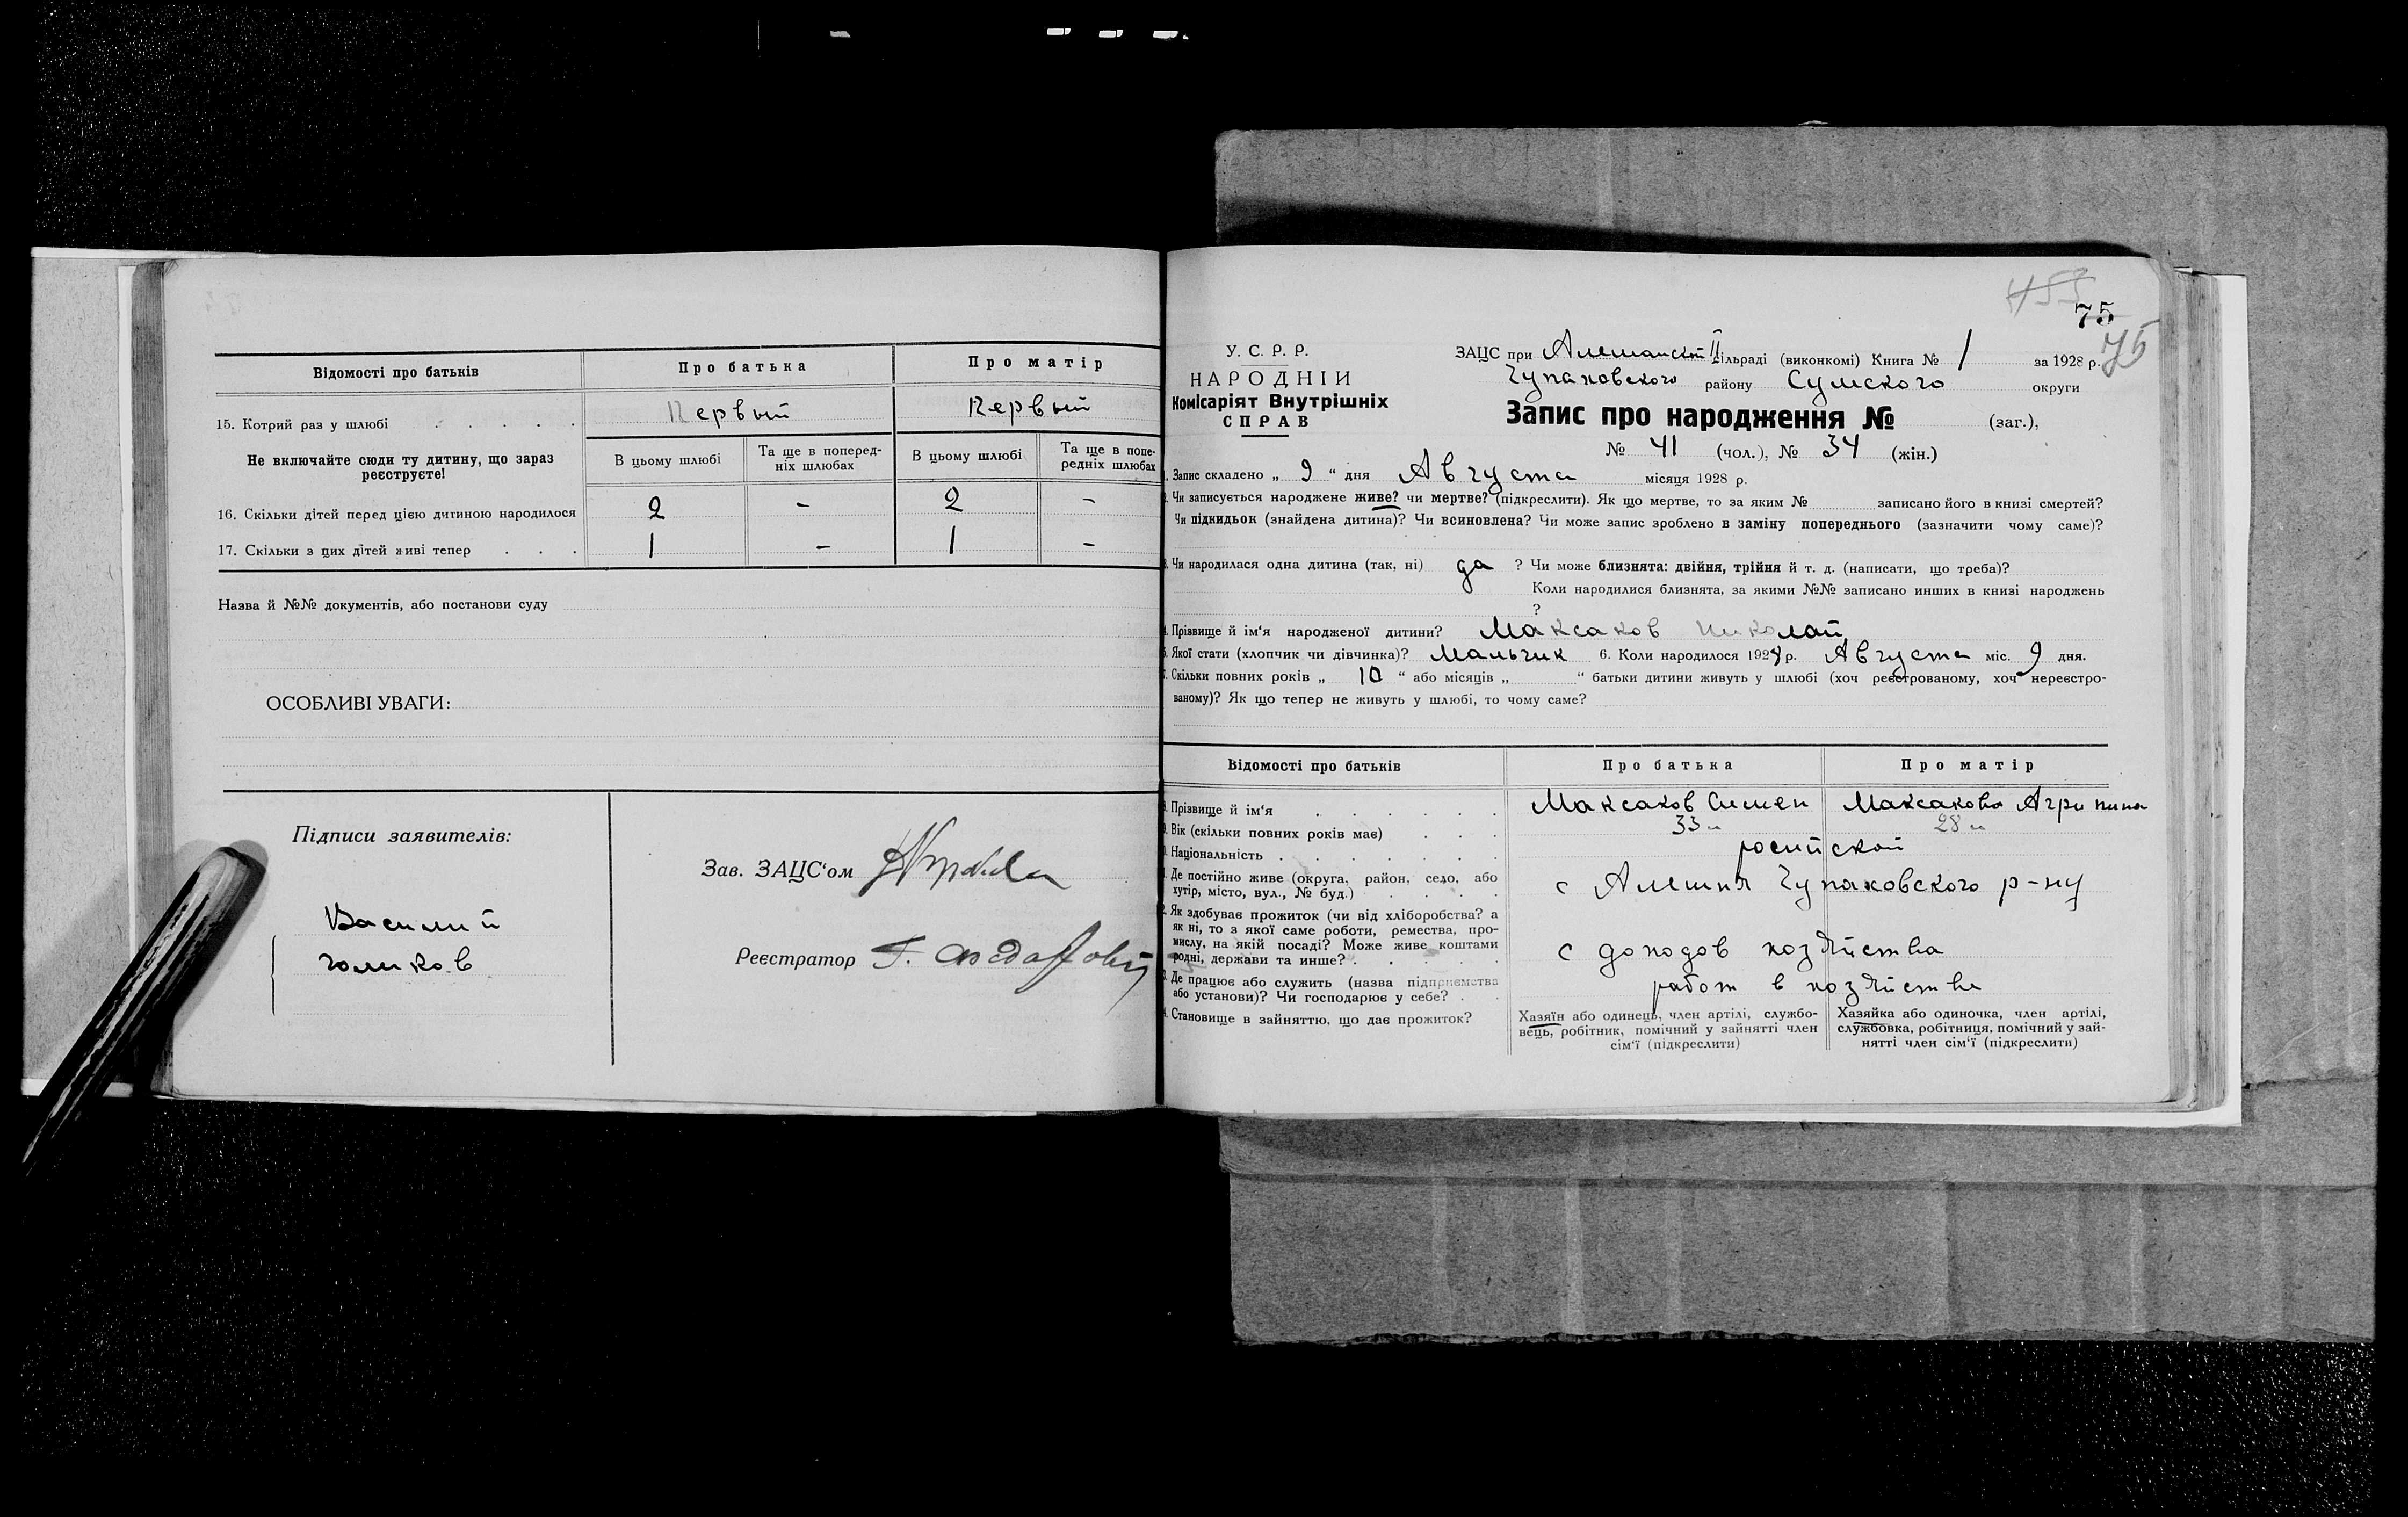 Відомості про батьків
Про батька
Про матір
15. Котрий раз у шлюбі . . . . .
Первый
Первый
Не включайте сюди ту дитину, що зараз реєструєте!
В цьому шлюбі
Та ще в поперед-
ніх шлюбах
В цьому шлюбі
Та ще в попе-
редніх шлюбах
16. Скільки дітей перед цією дитиною народилося
2
-
2
-
17. Скільки з цих дітей живі тепер . . .
1
-
1
-
Назва й №№ документів, або постанови суду
ОСОБЛИВІ УВАГИ:
Підписи заявителів:
Василий
голиков
Зав. ЗАЦС'ом
Реєстратор Г.
75
75
У. С. Р. Р.
НАРОДНІЙ
Комісаріят Внутрішніх
СПРАВ
ЗАЦС при Алешанской II сільраді (виконкомі) Книга № 1 за 1928 р.
Чупаховского району Сумского округи
Запис про народження № (заг.),
№ 41 (чол.), № 34 (жін.)
1. Запис складено „ 9 “ дня Августа місяця 1928 р.
2. Чи записується народжене живе? чи мертве? (підкреслити). Як що мертве, то за яким № записано його в книзі смертей?
Чи підкидьок (знайдена дитина)? Чи всиновлена? Чи може запис зроблено в заміну попереднього (зазначити чому саме)?
3. Чи народилася одна дитина (так, ні) да ? Чи може близнята: двійня, трійня й т. д. (написати, що треба)?
Коли народилися близнята, за якими №№ записано инших в книзі народжень
?
4. Прізвище й ім'я народженої дитини? Максаков Николай
5. Якої стати (хлопчик чи дівчинка)? Мальчик 6. Коли народилося 1928 р. Августа міс. 9 дня.
7. Скільки повних років „ 10 “ або місяців „ “ батьки дитини живуть у шлюбі (хоч реєстрованому, хоч нереєстро-
ваному)? Як що тепер не живуть у шлюбі, то чому саме?
Відомості про батьків
Про батька
Про матір
8. Прізвище й ім'я . . . . . .
Максаков Симен
Максакова Агрипина
9. Вік (скільки повних років має) . . .
33
28
10. Національність . . . . . . .
росийской
11. Де постійно живе (округа, район, село, або
хутір, місто, вул., № буд.) . . . .
с Алешня Чупаховского р-ну
12. Як здобуває прожиток (чи від хліборобства? а
як ні, то з якої саме роботи, ремества, про-
мислу, на якій посаді? Може живе коштами
родні, держави та инше? . . . . .
с доходов хозяйства
13. Де працює або служить (назва підприємства
або установи)? Чи господарює у себе? . .
работ в хозяйстве
14. Становище в зайняттю, що дає прожиток?
Хазяїн або одинець, член артілі, службо-
вець, робітник, помічний у зайнятті член
сім'ї (підкреслити)
Хазяйка або одиночка, член артілі,
службовка, робітниця, помічний у зай-
нятті член сім'ї (підкреслити)